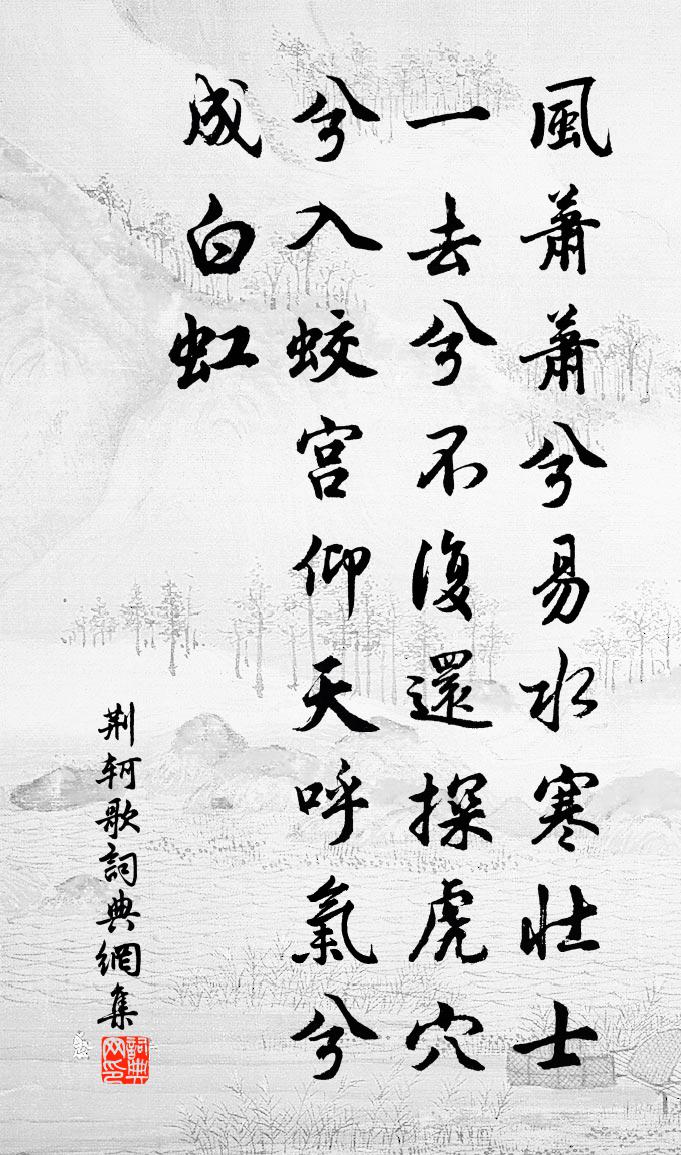 風蕭蕭兮易水寒壯士
一去兮不復還探虎穴
兮入蛟宮仰天呼氣兮
成白虹
荆軻歌詞典網集
詞典網印